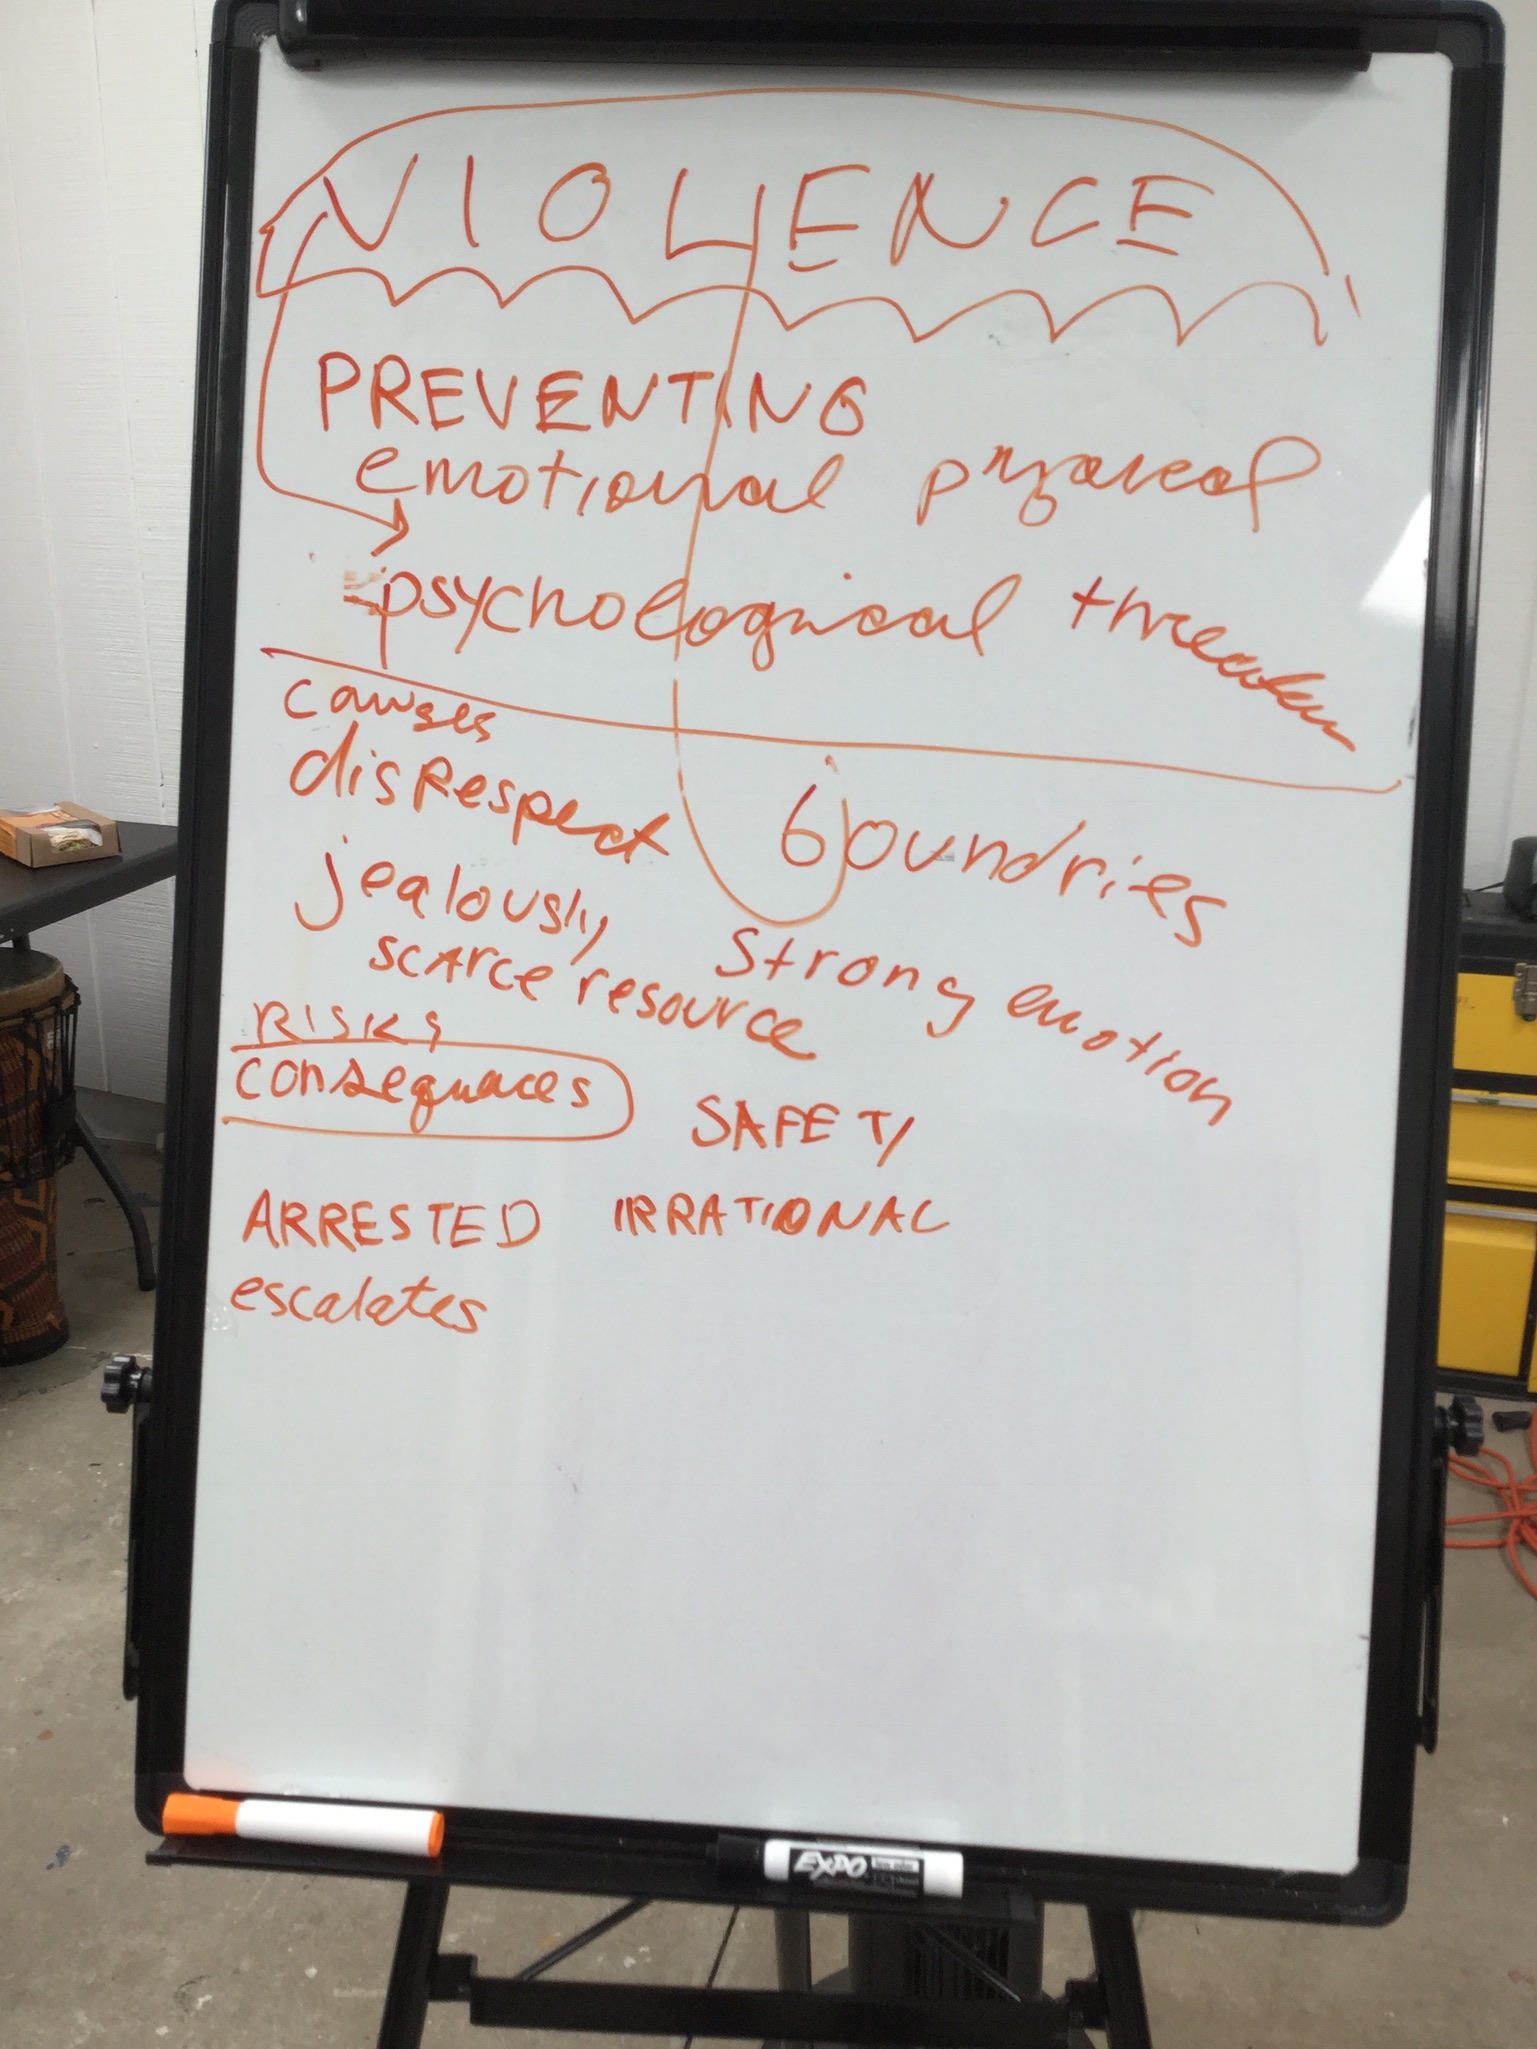 VIOLENCE
PREVENTING
emotional physical
psychological threaten
causes
disRespect
boundries
jealously
strong emotion
scarce resource
RISKS
consequaces
SAFETY
ARRESTED IRRATIONAL
escalates
EXPO